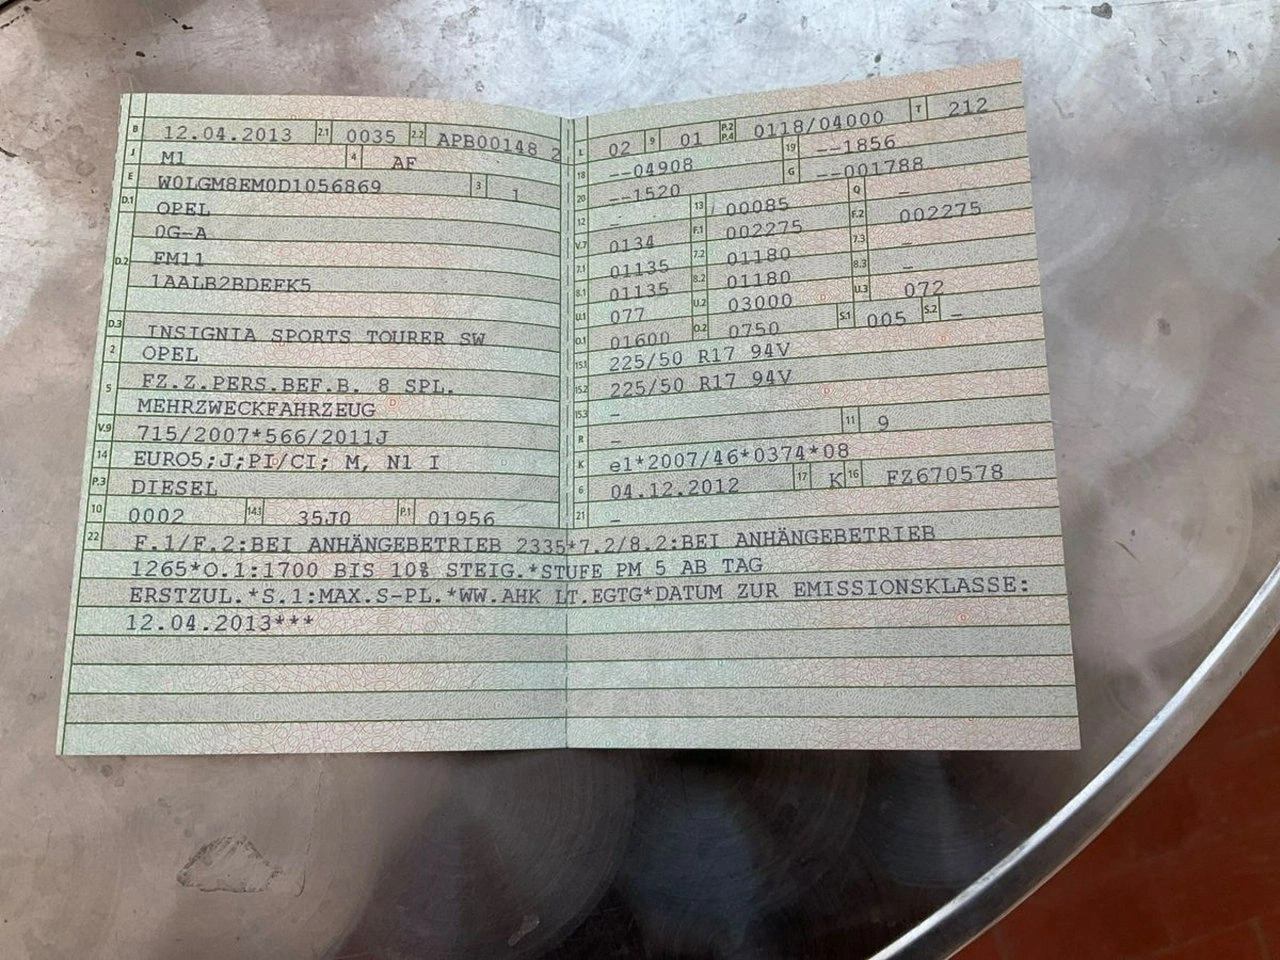 B 12.04.2013 2.1 0035 2.2 APB00148 2
J M1 4 AF
E W0LGM8EM0D1056869 3 1
D.1 OPEL
0G-A
D.2 FM11
1AALB2BDEFK5
D.3 INSIGNIA SPORTS TOURER SW
2 OPEL
5 FZ.Z.PERS.BEF.B. 8 SPL.
MEHRZWECKFAHRZEUG
V.9 715/2007*566/2011J
14 EURO5;J;PI/CI; M, N1 I
P.3 DIESEL
10 0002 14.1 35J0 P.1 01956
L 02 9 01 P.2 P.4 0118/04000 T 212
18 --04908 19 --1856
20 --1520 G --001788
12 - 13 00085 Q -
V.7 0134 F.1 002275 F.2 002275
7.1 01135 7.2 01180 7.3 -
8.1 01135 8.2 01180 8.3 -
U.1 077 U.2 03000 U.3 072
O.1 01600 O.2 0750 S.1 005 S.2 -
15.1 225/50 R17 94V
15.2 225/50 R17 94V
15.3 -
R - 11 9
K e1*2007/46*0374*08
6 04.12.2012 17 K 16 FZ670578
21 -
22 F.1/F.2:BEI ANHÄNGEBETRIEB 2335*7.2/8.2:BEI ANHÄNGEBETRIEB
1265*O.1:1700 BIS 10% STEIG.*STUFE PM 5 AB TAG
ERSTZUL.*S.1:MAX.S-PL.*WW.AHK LT.EGTG*DATUM ZUR EMISSIONSKLASSE:
12.04.2013***